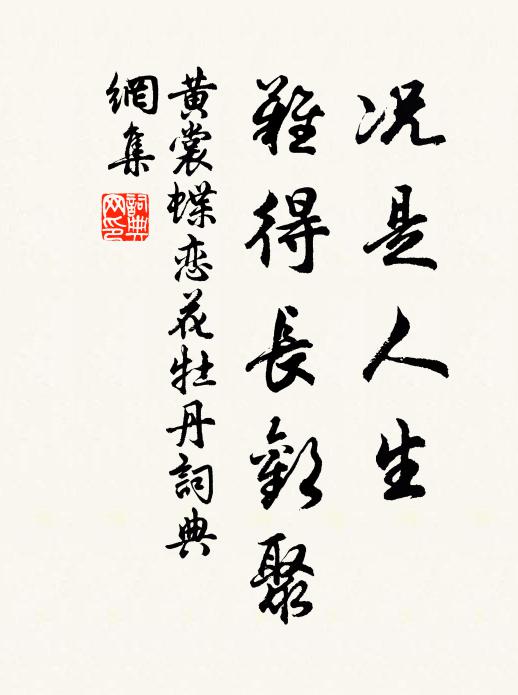 况是人生
難得長歡聚
黃裳蝶恋花牡丹詞典
網集
詞典
网印